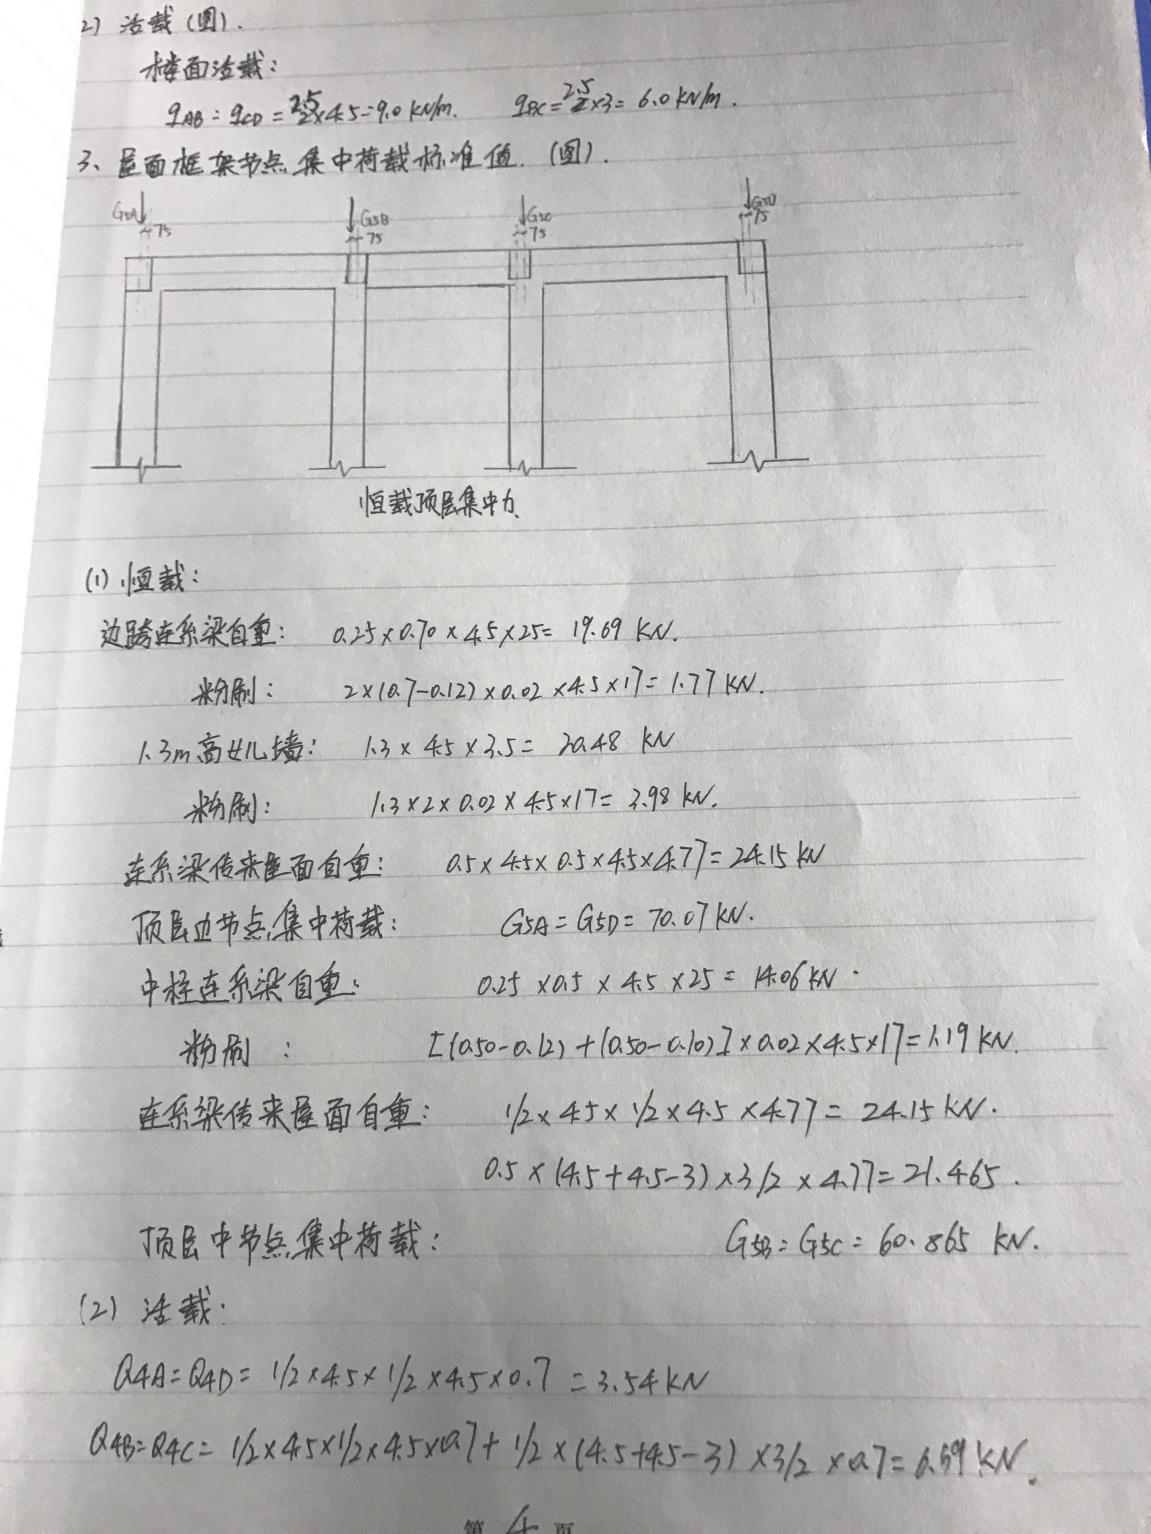 2) 活载(图).
楼面活载:
qAB=qCD=2.5/2×4.5=9.0 kN/m. qBC=2.5/2×3=6.0 kN/m.
3、屋面框架节点集中荷载标准值.(图).
G5A G5B G5C G5D
75 75 75 75
恒载顶层集中力
(1) 恒载:
边跨连系梁自重: 0.25×0.70×4.5×25=19.69 KN.
粉刷: 2×(0.7-0.12)×0.02×4.5×17=1.77 KN.
1.3m高女儿墙: 1.3×4.5×3.5=20.48 KN
粉刷: 1.3×2×0.02×4.5×17=3.98 KN.
连系梁传来屋面自重: 0.5×4.5×0.5×4.5×4.77=24.15 KN
顶层边节点集中荷载: G5A=G5D=70.07 KN.
中柱连系梁自重: 0.25×0.5×4.5×25=14.06 KN.
粉刷: [(0.50-0.12)+(0.50-0.10)]×0.02×4.5×17=1.19 KN.
连系梁传来屋面自重: 1/2×4.5×1/2×4.5×4.77=24.15 KN.
0.5×(4.5+4.5-3)×3/2×4.77=21.465.
顶层中节点集中荷载: G5B=G5C=60.865 KN.
(2) 活载:
Q4A=Q4D=1/2×4.5×1/2×4.5×0.7=3.54 KN
Q4B=Q4C=1/2×4.5×1/2×4.5×0.7+1/2×(4.5+4.5-3)×3/2×0.7=6.69 KN.
第 4 页